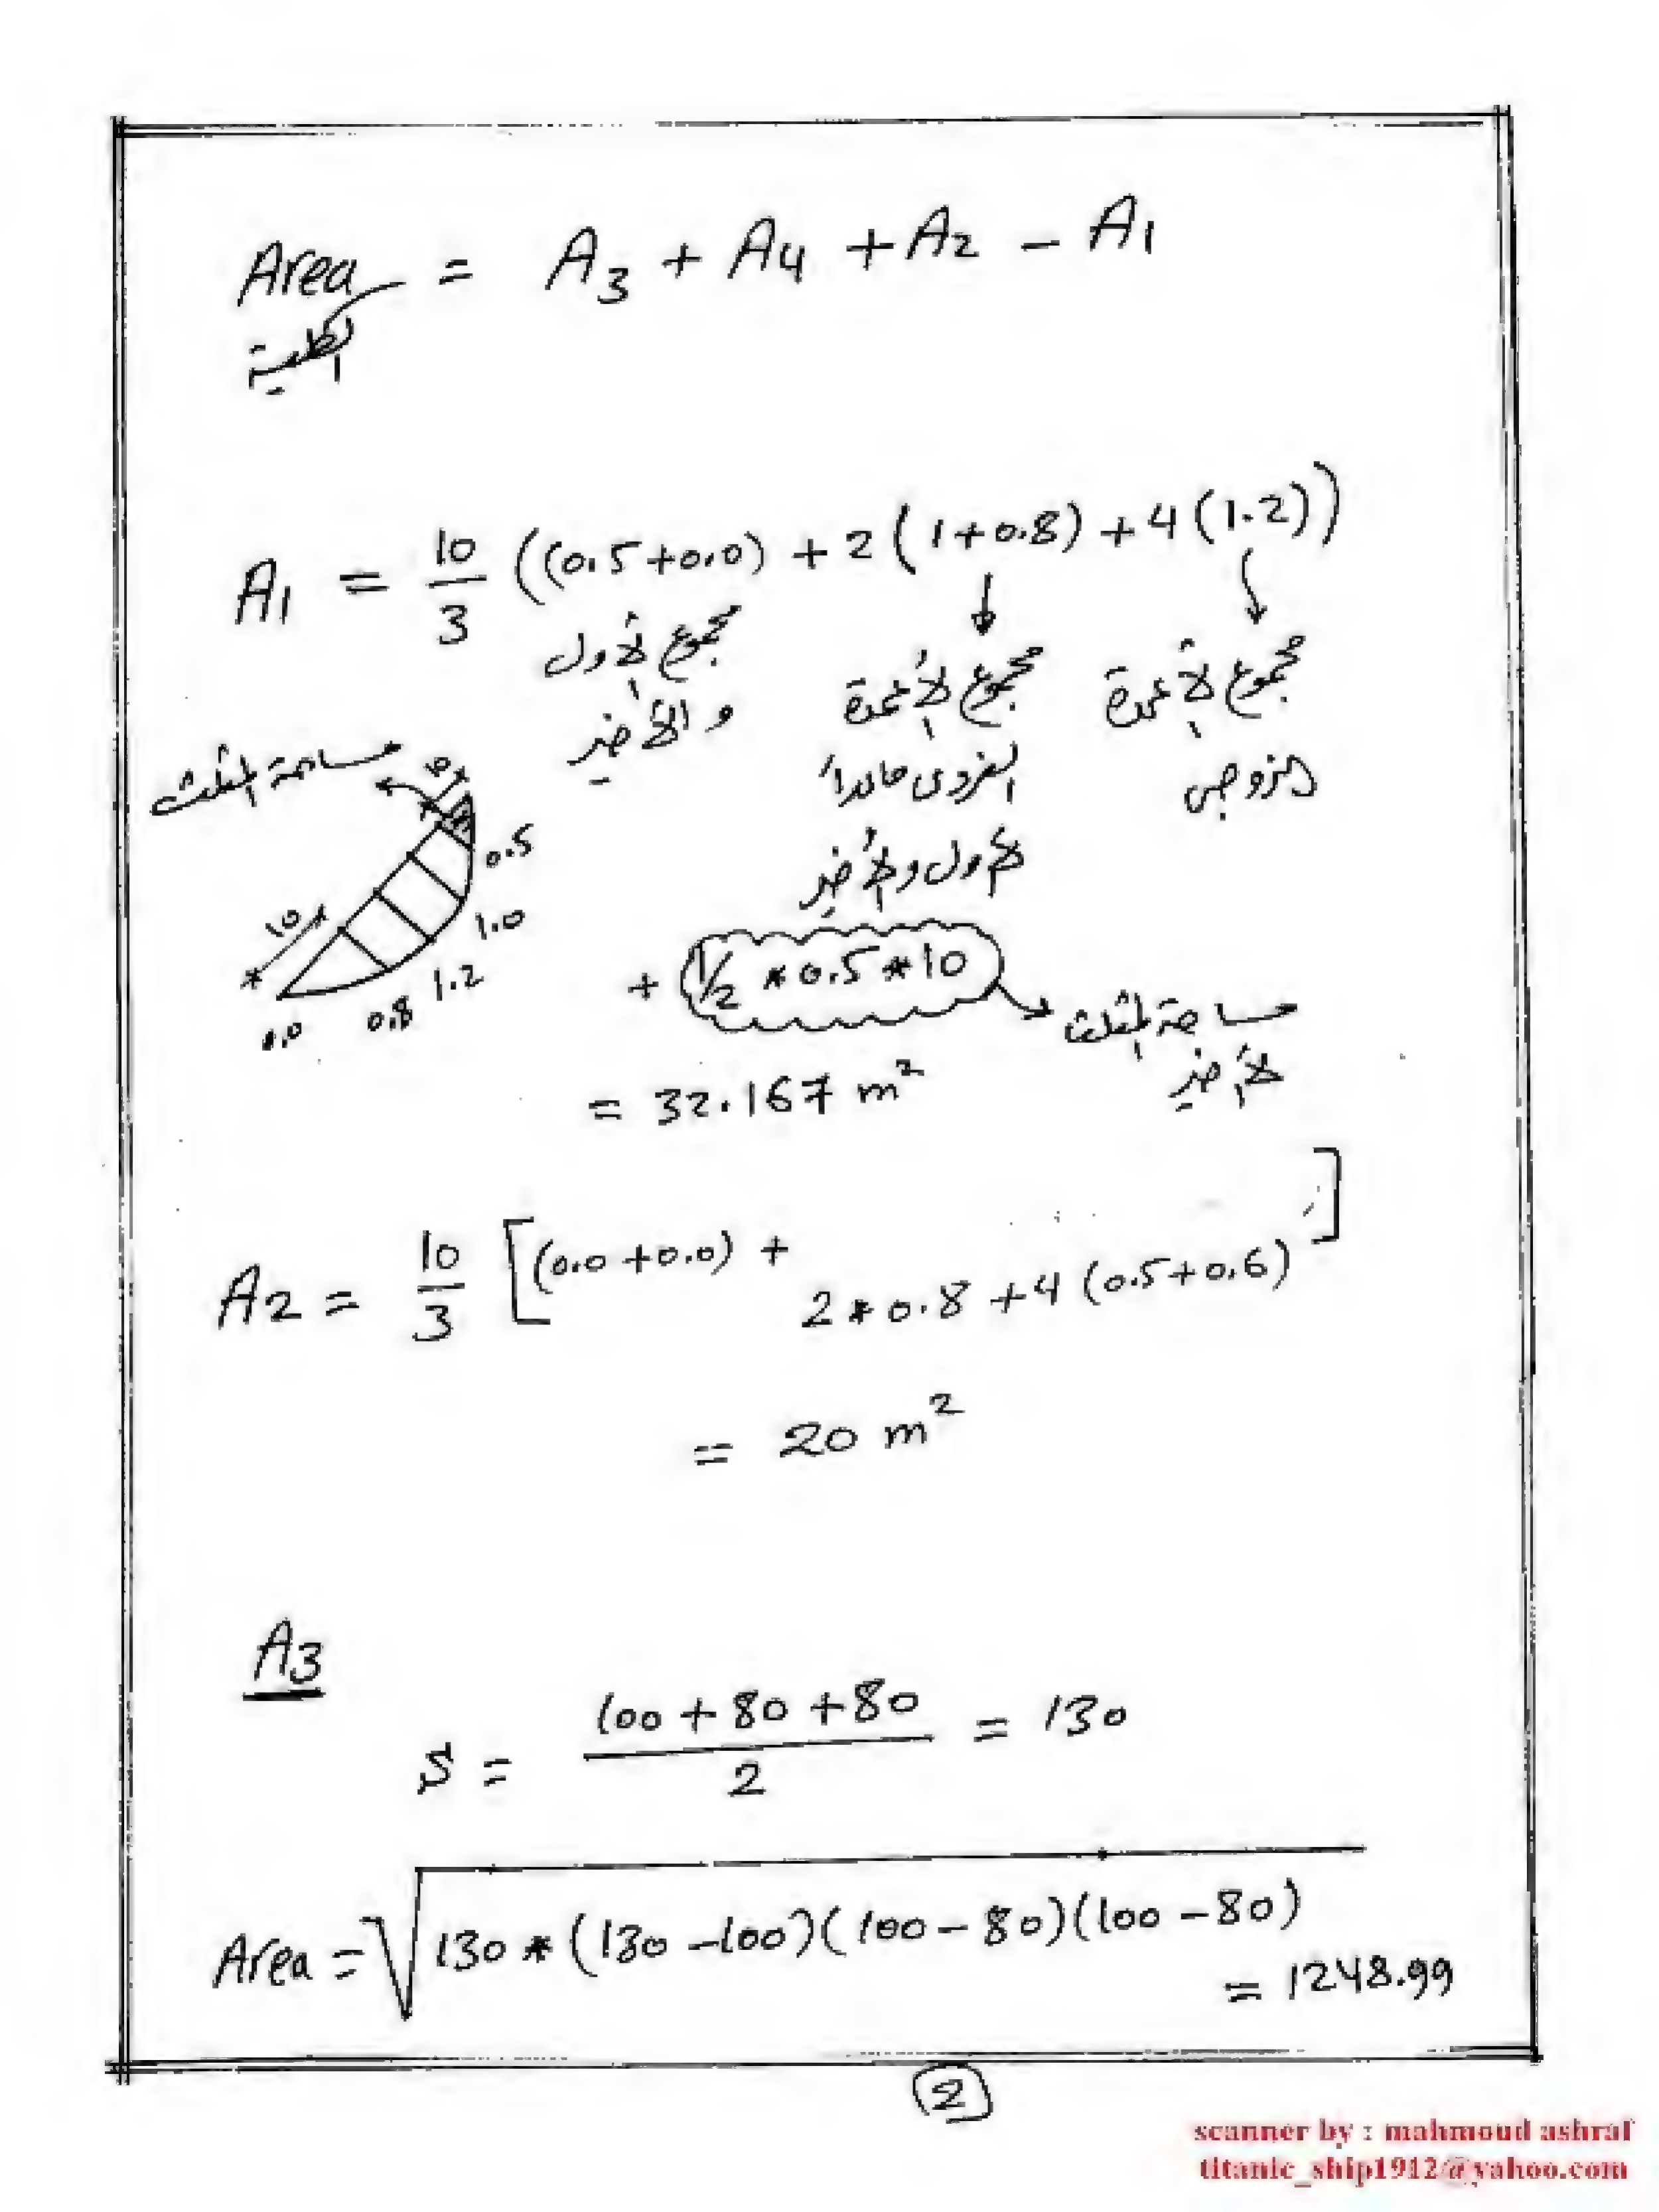 Area = A3 + A4 + A2 - A1
A1 = 10/3 ((0.5+0.0) + 2(1+0.8) + 4(1.2))
مجموع الأول
والأخير
مجموع الأعمدة
الفردى ماعدا
الأول والأخير
مجموع الأعمدة
الزوجى
مساحة المثلث
10
0.5
1.0
1.2
0.8
0.0
10
+ 1/2 * 0.5 * 10
مساحة المثلث
الأخير
= 32.167 m²
A2 = 10/3 [(0.0+0.0) + 2*0.8 + 4(0.5+0.6)]
= 20 m²
A3
S = (100+80+80)/2 = 130
Area = √130*(130-100)(100-80)(100-80)
= 1248.99
2
scanner by : mahmoud ashraf
titanic_ship1912@yahoo.com